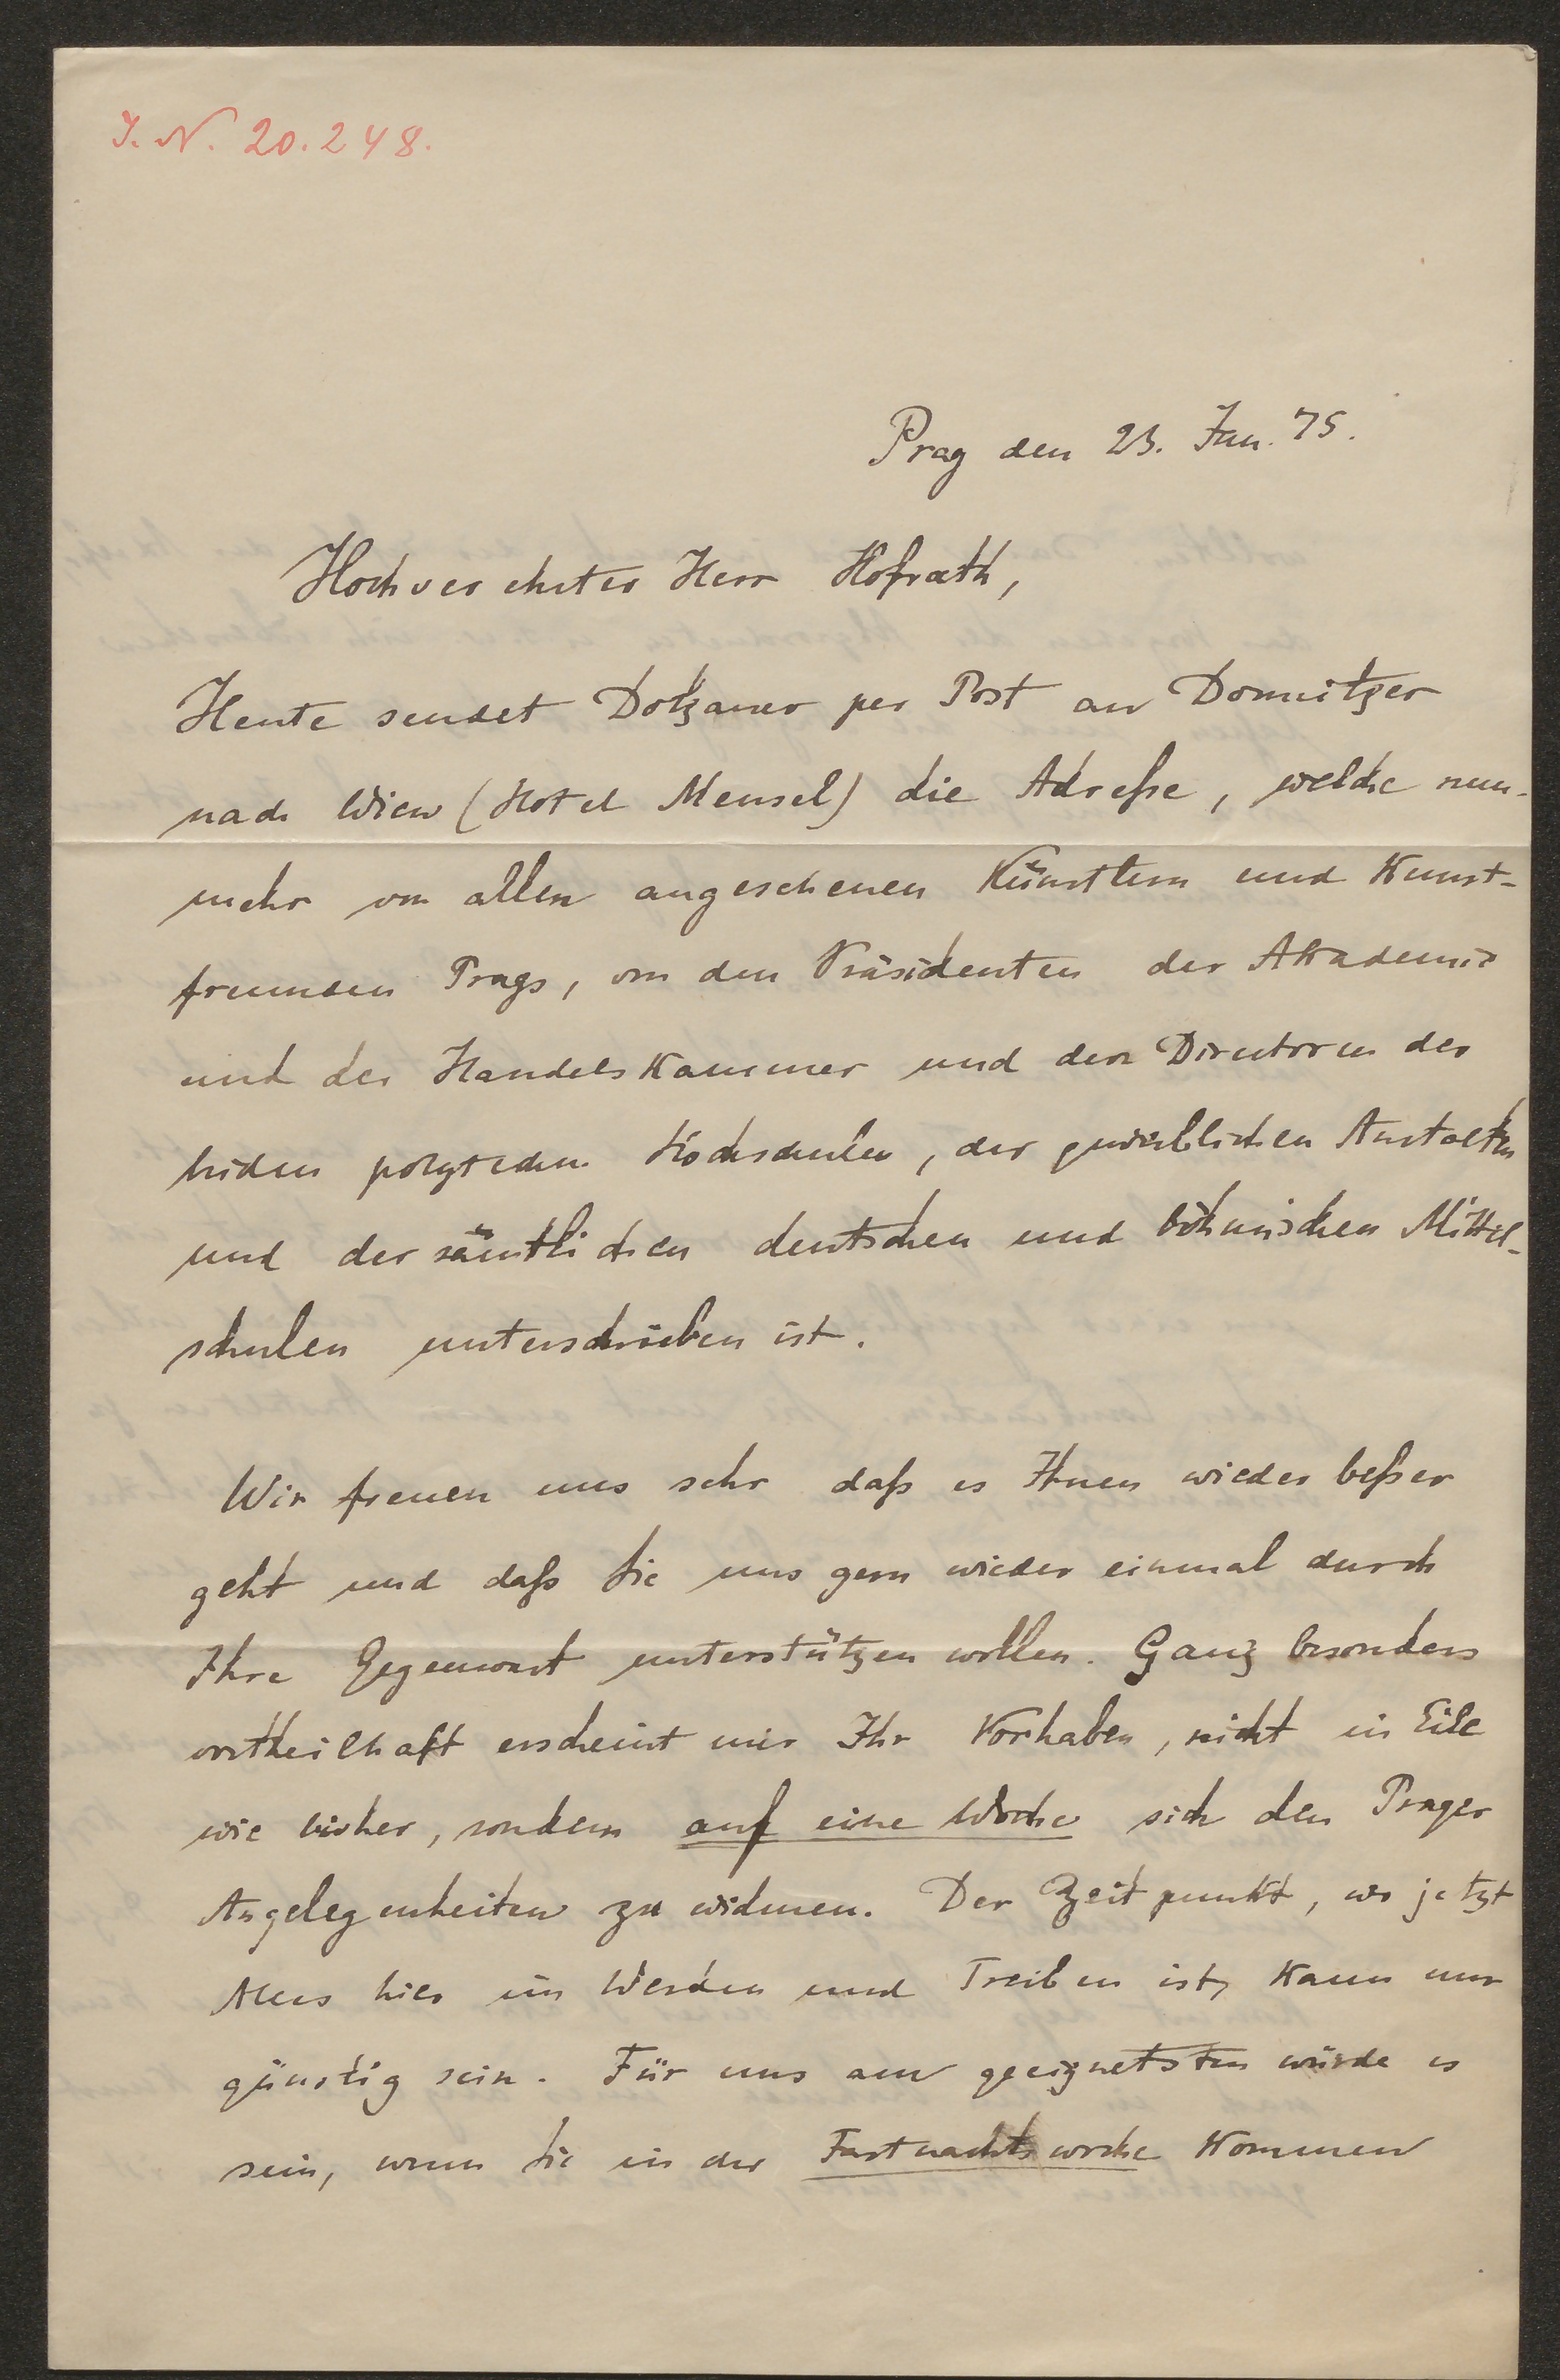 I. N. 20.248.
Prag den 23. Jan. 75.
Hochverehrter Herr Hofrath,
Heute sendet Dotzauer per Post an Dormitzer
nach Wien (Hotel Meusel) die Adreße, welche nun-
mehr von allen angesehenen Künstlern und Kunst-
freunden Prags, von den Präsidenten der Akademie
und der Handelskammer und den Directoren der
beiden polytechn. Hochschulen, der gewerblichen Anstalten
und der sämtlichen deutschen und böhmischen Mittel-
schulen unterschrieben ist.
Wir freuen uns sehr daß es Ihnen wieder beßer
geht und daß Sie uns gern wieder einmal durch
Ihre Gegenwart unterstützen wollen. Ganz besonders
vortheilhaft erscheint mir Ihr Vorhaben, nicht in Eile
wie bisher, sondern auf eine Woche sich den Prager
Angelegenheiten zu widmen. Der Zeitpunkt, wo jetzt
Alles hier im Werden und Treiben ist, kann nur
günstig sein. Für uns am geeignetsten würde es
sein, wenn Sie in der Fastnachtswoche kommen